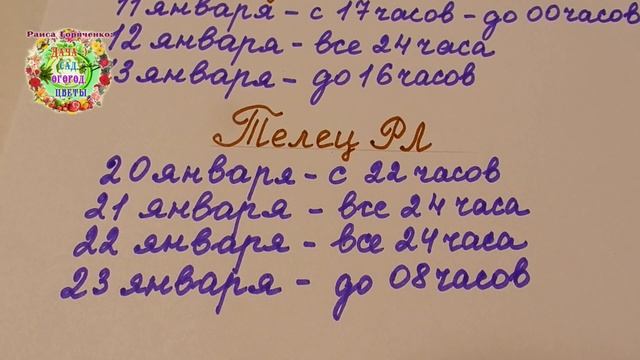 11 января - с 17 часов - до 00 часов
12 января - все 24 часа
13 января - до 16 часов
Раиса Горяченко
ДАЧА
САД
ОГОРОД
ЦВЕТЫ
Телец РЛ
20 января - с 22 часов
21 января - все 24 часа
22 января - все 24 часа
23 января - до 08 часов